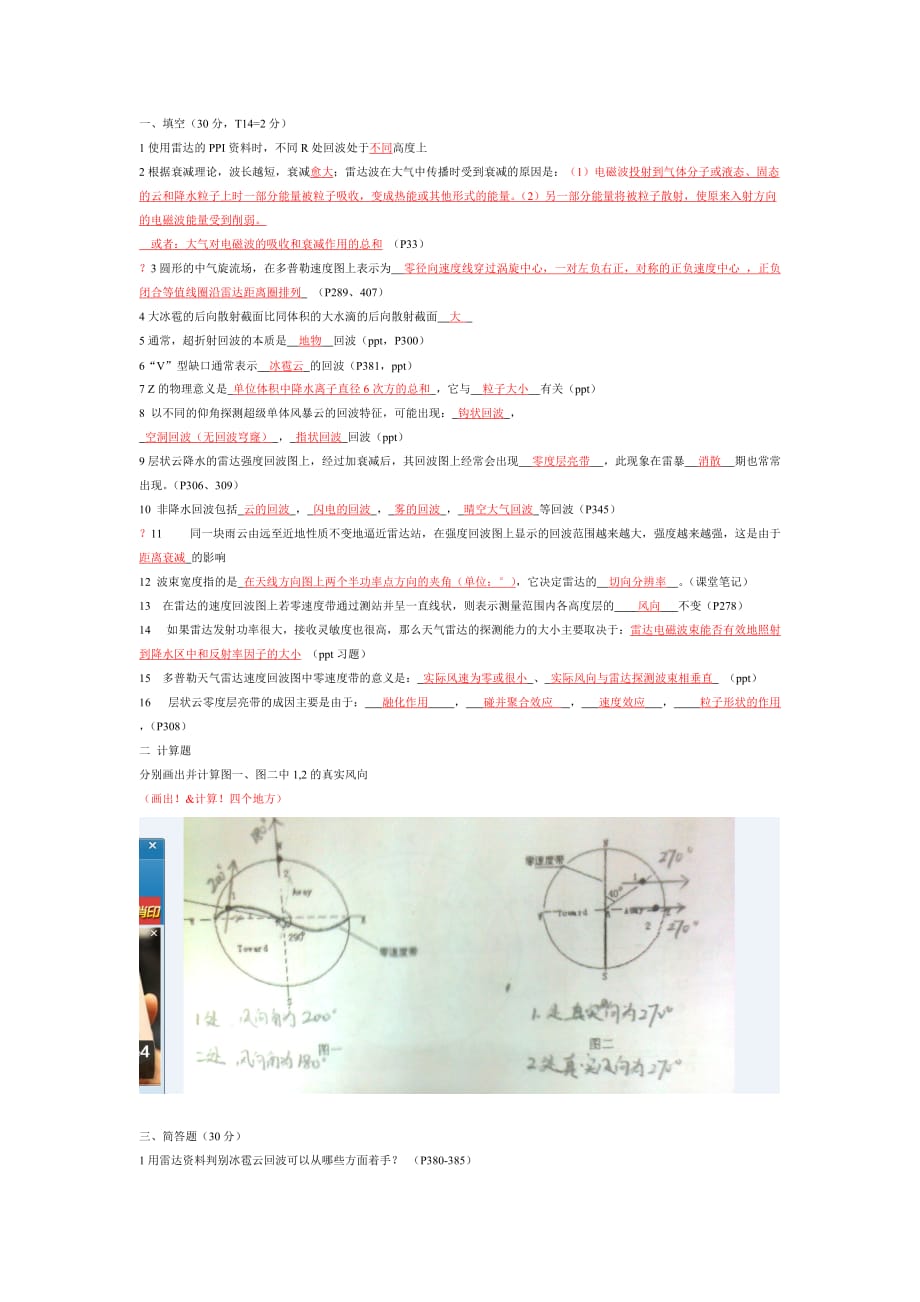 一、填空（30 分，T14=2 分）
1 使用雷达的 PPI 资料时，不同 R 处回波处于不同高度上
2 根据衰减理论，波长越短，衰减愈大；雷达波在大气中传播时受到衰减的原因是：（1）电磁波投射到气体分子或液态、固态
的云和降水粒子上时一部分能量被粒子吸收，变成热能或其他形式的能量。（2）另一部分能量将被粒子散射，使原来入射方向
的电磁波能量受到削弱。
或者：大气对电磁波的吸收和衰减作用的总和 （P33）
？3 圆形的中气旋流场，在多普勒速度图上表示为 零径向速度线穿过涡旋中心，一对左负右正，对称的正负速度中心 ，正负
闭合等值线圈沿雷达距离圈排列 （P289、407）
4 大冰雹的后向散射截面比同体积的大水滴的后向散射截面 大
5 通常，超折射回波的本质是 地物 回波（ppt，P300）
6“V”型缺口通常表示 冰雹云 的回波（P381，ppt）
7 Z 的物理意义是 单位体积中降水离子直径 6 次方的总和 ，它与 粒子大小 有关（ppt）
8 以不同的仰角探测超级单体风暴云的回波特征，可能出现： 钩状回波 ，
空洞回波（无回波穹窿） ， 指状回波 回波（ppt）
9 层状云降水的雷达强度回波图上，经过加衰减后，其回波图上经常会出现 零度层亮带 ，此现象在雷暴 消散 期也常常
出现。（P306、309）
10 非降水回波包括 云的回波 ， 闪电的回波 ， 雾的回波 ， 晴空大气回波 等回波（P345）
？11 同一块雨云由远至近地性质不变地逼近雷达站，在强度回波图上显示的回波范围越来越大，强度越来越强，这是由于
距离衰减 的影响
12 波束宽度指的是 在天线方向图上两个半功率点方向的夹角（单位：°），它决定雷达的 切向分辨率 。（课堂笔记）
13 在雷达的速度回波图上若零速度带通过测站并呈一直线状，则表示测量范围内各高度层的 风向 不变（P278）
14 如果雷达发射功率很大，接收灵敏度也很高，那么天气雷达的探测能力的大小主要取决于：雷达电磁波束能否有效地照射
到降水区中和反射率因子的大小 （ppt 习题）
15 多普勒天气雷达速度回波图中零速度带的意义是： 实际风速为零或很小 、 实际风向与雷达探测波束相垂直 （ppt）
16 层状云零度层亮带的成因主要是由于： 融化作用 ， 碰并聚合效应 ， 速度效应 ， 粒子形状的作用
，（P308）
二 计算题
分别画出并计算图一、图二中 1,2 的真实风向
（画出！&计算！四个地方）
180°
N
200°
1
2
Away
290°
Toward
零速度带
S
1处 风向角为200°
图一
2处 风向角为180°
N
零速度带
1
270°
60°
Toward
Away
2
270°
S
1.处真实风向为270°
图二
2.处真实风向为270°
消印
4
三、简答题（30 分）
1 用雷达资料判别冰雹云回波可以从哪些方面着手？ （P380-385）